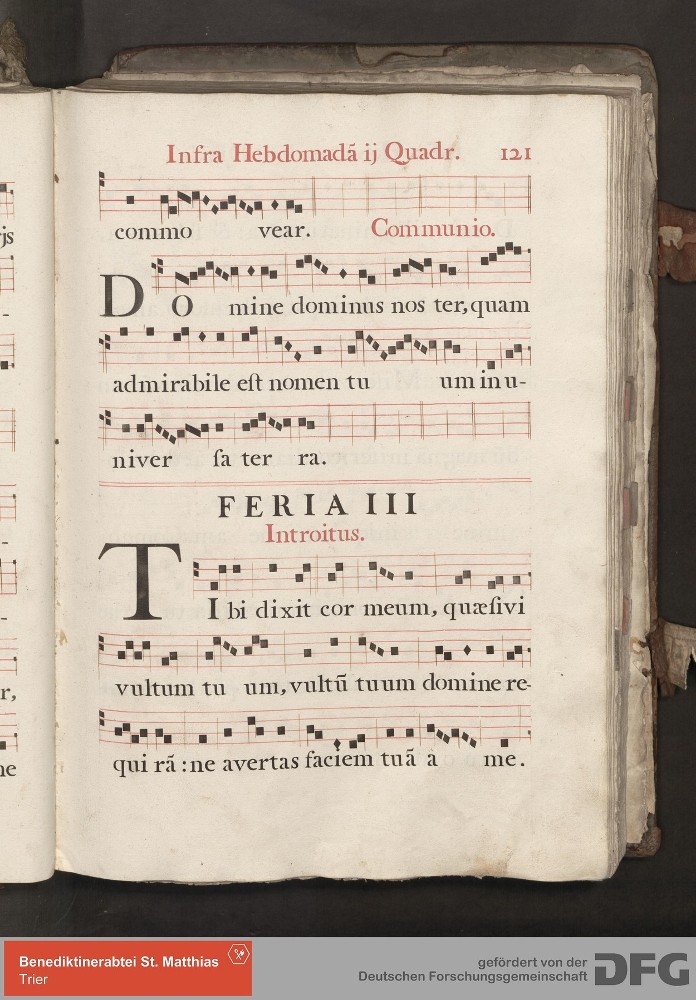 Infra Hebdomadã ij Quadr. 121
commo vear. Communio.
DO mine dominus nos ter, quam
admirabile eſt nomen tu um in u-
niver ſa ter ra.
FERIA III
Introitus.
TI bi dixit cor meum, quæſivi
vultum tu um, vultũ tuum domine re-
qui rã : ne avertas faciem tuã a me.
js
-
-
-
-
r,
ne
Benediktinerabtei St. Matthias
Trier
gefördert von der
Deutschen Forschungsgemeinschaft DFG